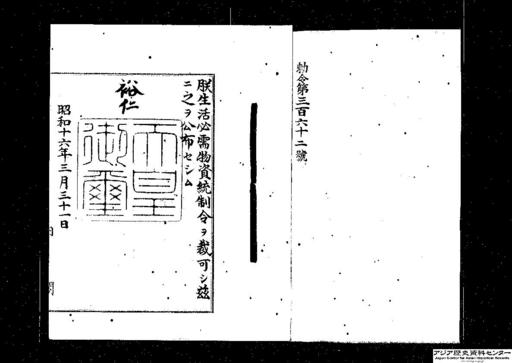 勅令第三百六十二號
朕生活必需物資統制令ヲ裁可シ茲
ニ之ヲ公布セシム
裕仁
天皇
御璽
昭和十六年三月三十一日
内閣
アジア歴史資料センター
Japan Center for Asian Historical Records